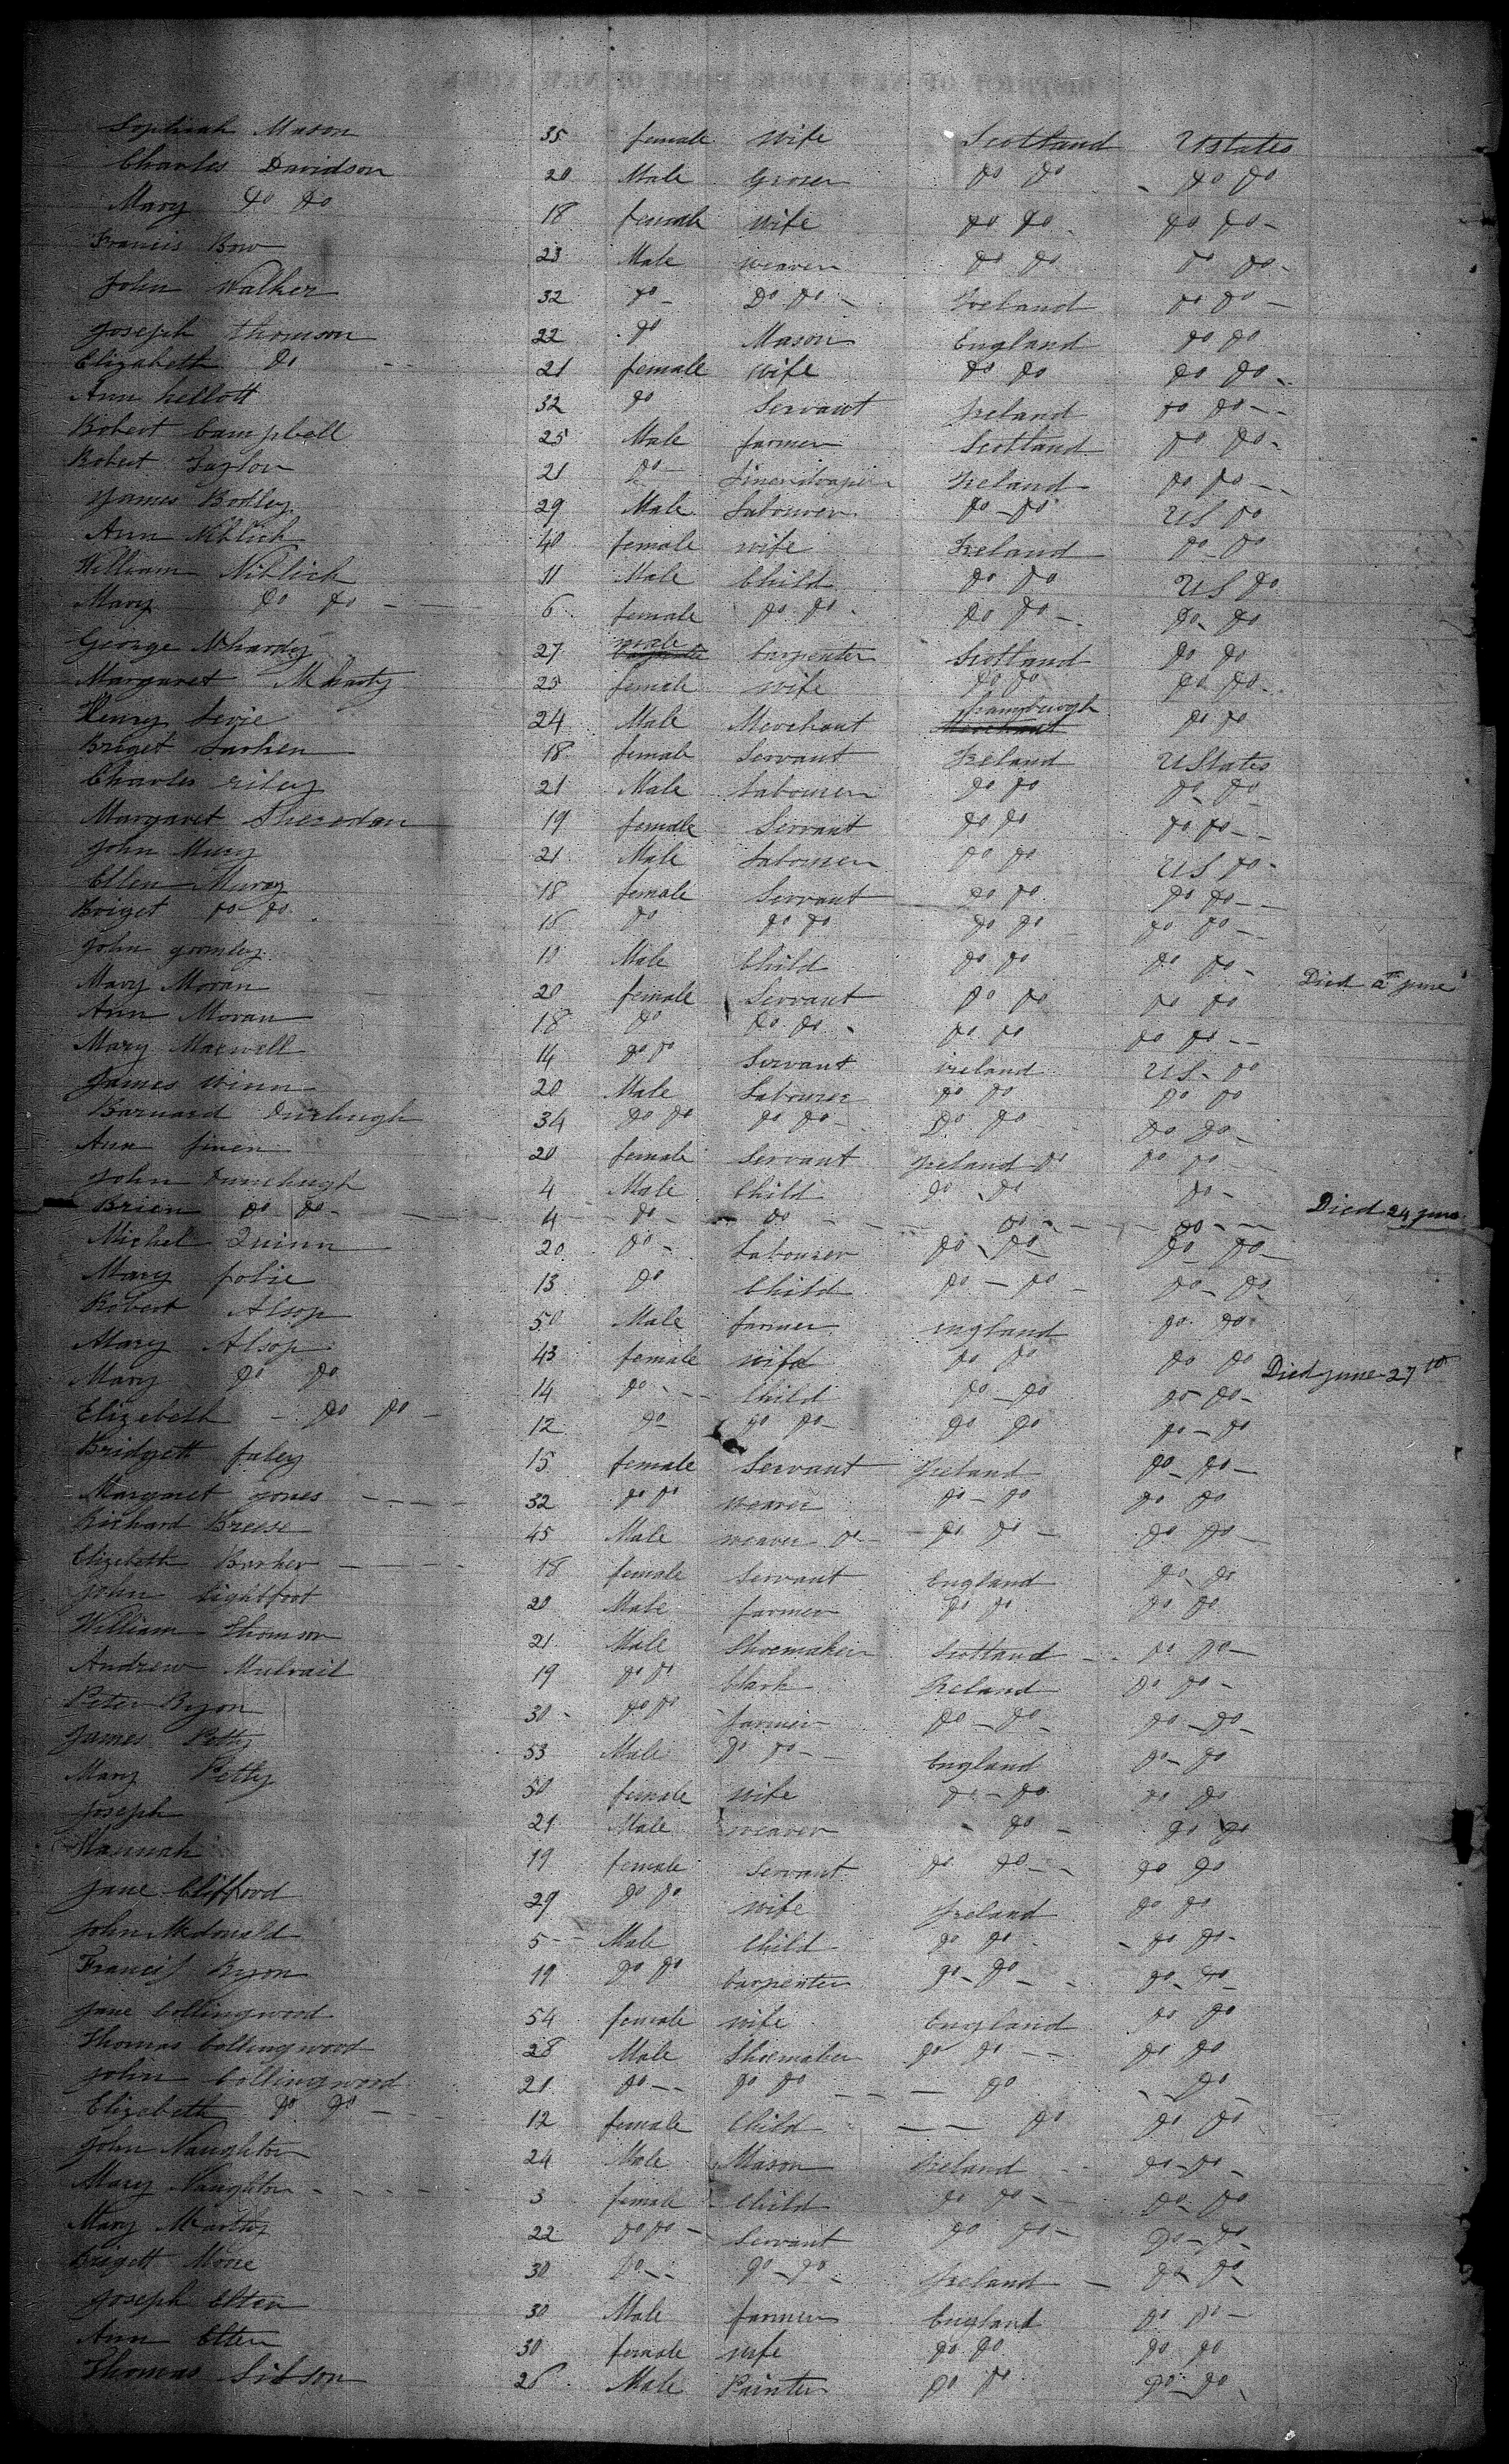 Sophiah Mason 35 female Wife Scotland UStates
Charles Davidson 20 Male Groser Do Do Do Do
Mary Do Do 18 female Wife Do Do Do Do -
Francis Bow 23 Male weaver Do Do Do Do -
John Walker 32 Do - Do Do - Ireland Do Do -
Joseph Thomson 22 Do Mason England Do Do
Elizabeth Do 21 female Wife Do Do Do Do -
Ann Kellott 32 Do Servant Ireland Do Do - -
Robert Campbell 25 Male farmer Scotland Do Do -
Robert Taylor 21 Do - Linendraper Ireland Do Do - -
James Bodley 29 Male Labourer Do - Do US Do
Ann Niblick 40 female wife Ireland Do - Do
William Niblick 11 Male Child Do Do US Do
Mary Do Do - 6 female Do Do - Do Do - Do - Do
George Mchardy 27 male Carpenter Scotland Do Do
Margaret Mchardy 25 female wife Do Do Do Do -
Henry Levie 24 Male Merchant Merchant Do Do
Briget Larken 18 female Servant Ireland UStates
Charles riley 21 Male Labourer Do Do Do - Do
Margaret Sheredan 19 female Servant Do Do Do Do - -
John Mury 21 Male Labourer Do Do US Do -
Ellen Murey 18 female Servant Do Do Do Do - -
Briget Do Do 16 Do Do Do Do Do Do Do - -
John gormley 10 Male Child Do Do Do Do - Died June
Mary Moran 20 female Servant Do Do Do Do
Ann Moran 18 Do Do Do - Do Do Do Do - -
Mary Maxwell 14 Do Do Servant ireland US - Do
James Winn 20 Male Labourer Do Do Do Do
Barnard 34 Do Do Do Do - Do Do Do Do -
Ann finen 20 female Servant Ireland Do Do Do
John 4 Male Child Do - Do Do -
Brien Do Do - 4 Do - Do - Do - Do - - Died 24 June
Michel Quinn 20 Do - Labourer Do - Do Do Do -
Mary 13 Do Child Do - Do - Do - Do
Robert Alsop 50 Male farmer england Do Do
Mary Alsop 43 female wife Do Do Do Do Died June 27th
Mary Do Do 14 Do - - Child Do - Do Do Do -
Elizebeth - Do Do - 12 Do Do Do - Do Do Do - Do
Bridgett faley 15 female Servant Ireland Do - Do -
Margaret jones - - - - 32 Do Do weaver Do - Do Do Do
Richard Breese 45 Male weaver Do - Do Do - Do Do -
Elizebeth Barker - - - 18 female Servant England Do - Do
John Lightfoot 20 Male farmer Do Do Do Do
William Thomson 21 Male Shoemaker Scotland - - Do Do -
Andrew Mulvail 19 Do Do Clark Ireland Do Do -
Peter Ryon 30 - Do Do farmer Do - Do - Do - Do -
James Petty 53 Male Do Do - - England Do - Do
Mary Petty 50 female wife Do - Do Do Do
Joseph 21 Male weaver - Do - Do Do
Hannah 19 female Servant Do Do - - Do Do
Jane Clifford 29 Do Do wife Ireland Do Do
John Mcdonald 5 - - Male Child Do Do - - Do Do -
Francis Ryon 19 Do Do Carpenter Do - Do - - Do - Do -
Jane Collingwood 54 female wife England Do Do
Thomas Collingwood 28 Male Shoemaker Do Do - - Do Do
John Collingwood 21 Do - - Do Do - - - Do - - Do -
Elizebeth Do Do - - 12 female Child - - Do Do Do -
John Naughton 24 Male Mason Ireland - Do - Do -
Mary Naughton - - - - 3 female Child Do Do - Do - Do
Mary Mcarthy 22 Do Do - Servant Do Do - Do - Do -
Brigett Moore 30 Do - - Do - Do - Ireland - Do - Do -
Joseph Elten 30 Male farmer England Do Do -
Ann Elten 30 female wife Do Do Do Do
Thomas Sibson 26 Male Painter Do Do Do - Do -